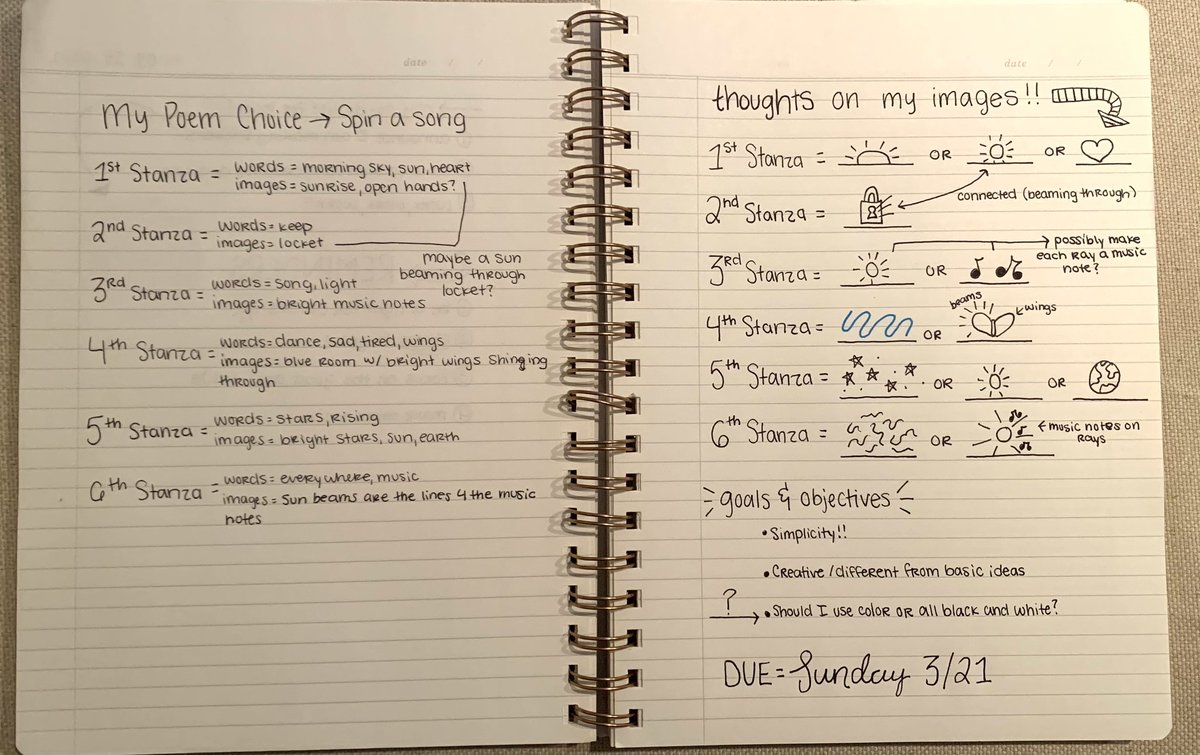 date / /
My Poem Choice → Spin a song
1st Stanza = words = morning sky, sun, heart
images = sunrise, open hands?
2nd Stanza = words = keep
images = locket
maybe a sun
beaming through
locket?
3rd Stanza = words = song, light
images = bright music notes
4th Stanza = words = dance, sad, tired, wings
images = blue room w/ bright wings shinging
through
5th Stanza = words = stars, rising
images = bright stars, sun, earth
6th Stanza = words = everywhere, music
images = sun beams are the lines 4 the music
notes
date / /
thoughts on my images!!
1st Stanza = OR OR
2nd Stanza =
connected (beaming through)
3rd Stanza = OR
possibly make
each ray a music
note?
4th Stanza = OR
beams
wings
5th Stanza = OR OR
6th Stanza = OR
music notes on
rays
goals & objectives
• Simplicity!!
• Creative/different from basic ideas
? → • Should I use color or all black and white?
DUE = Sunday 3/21